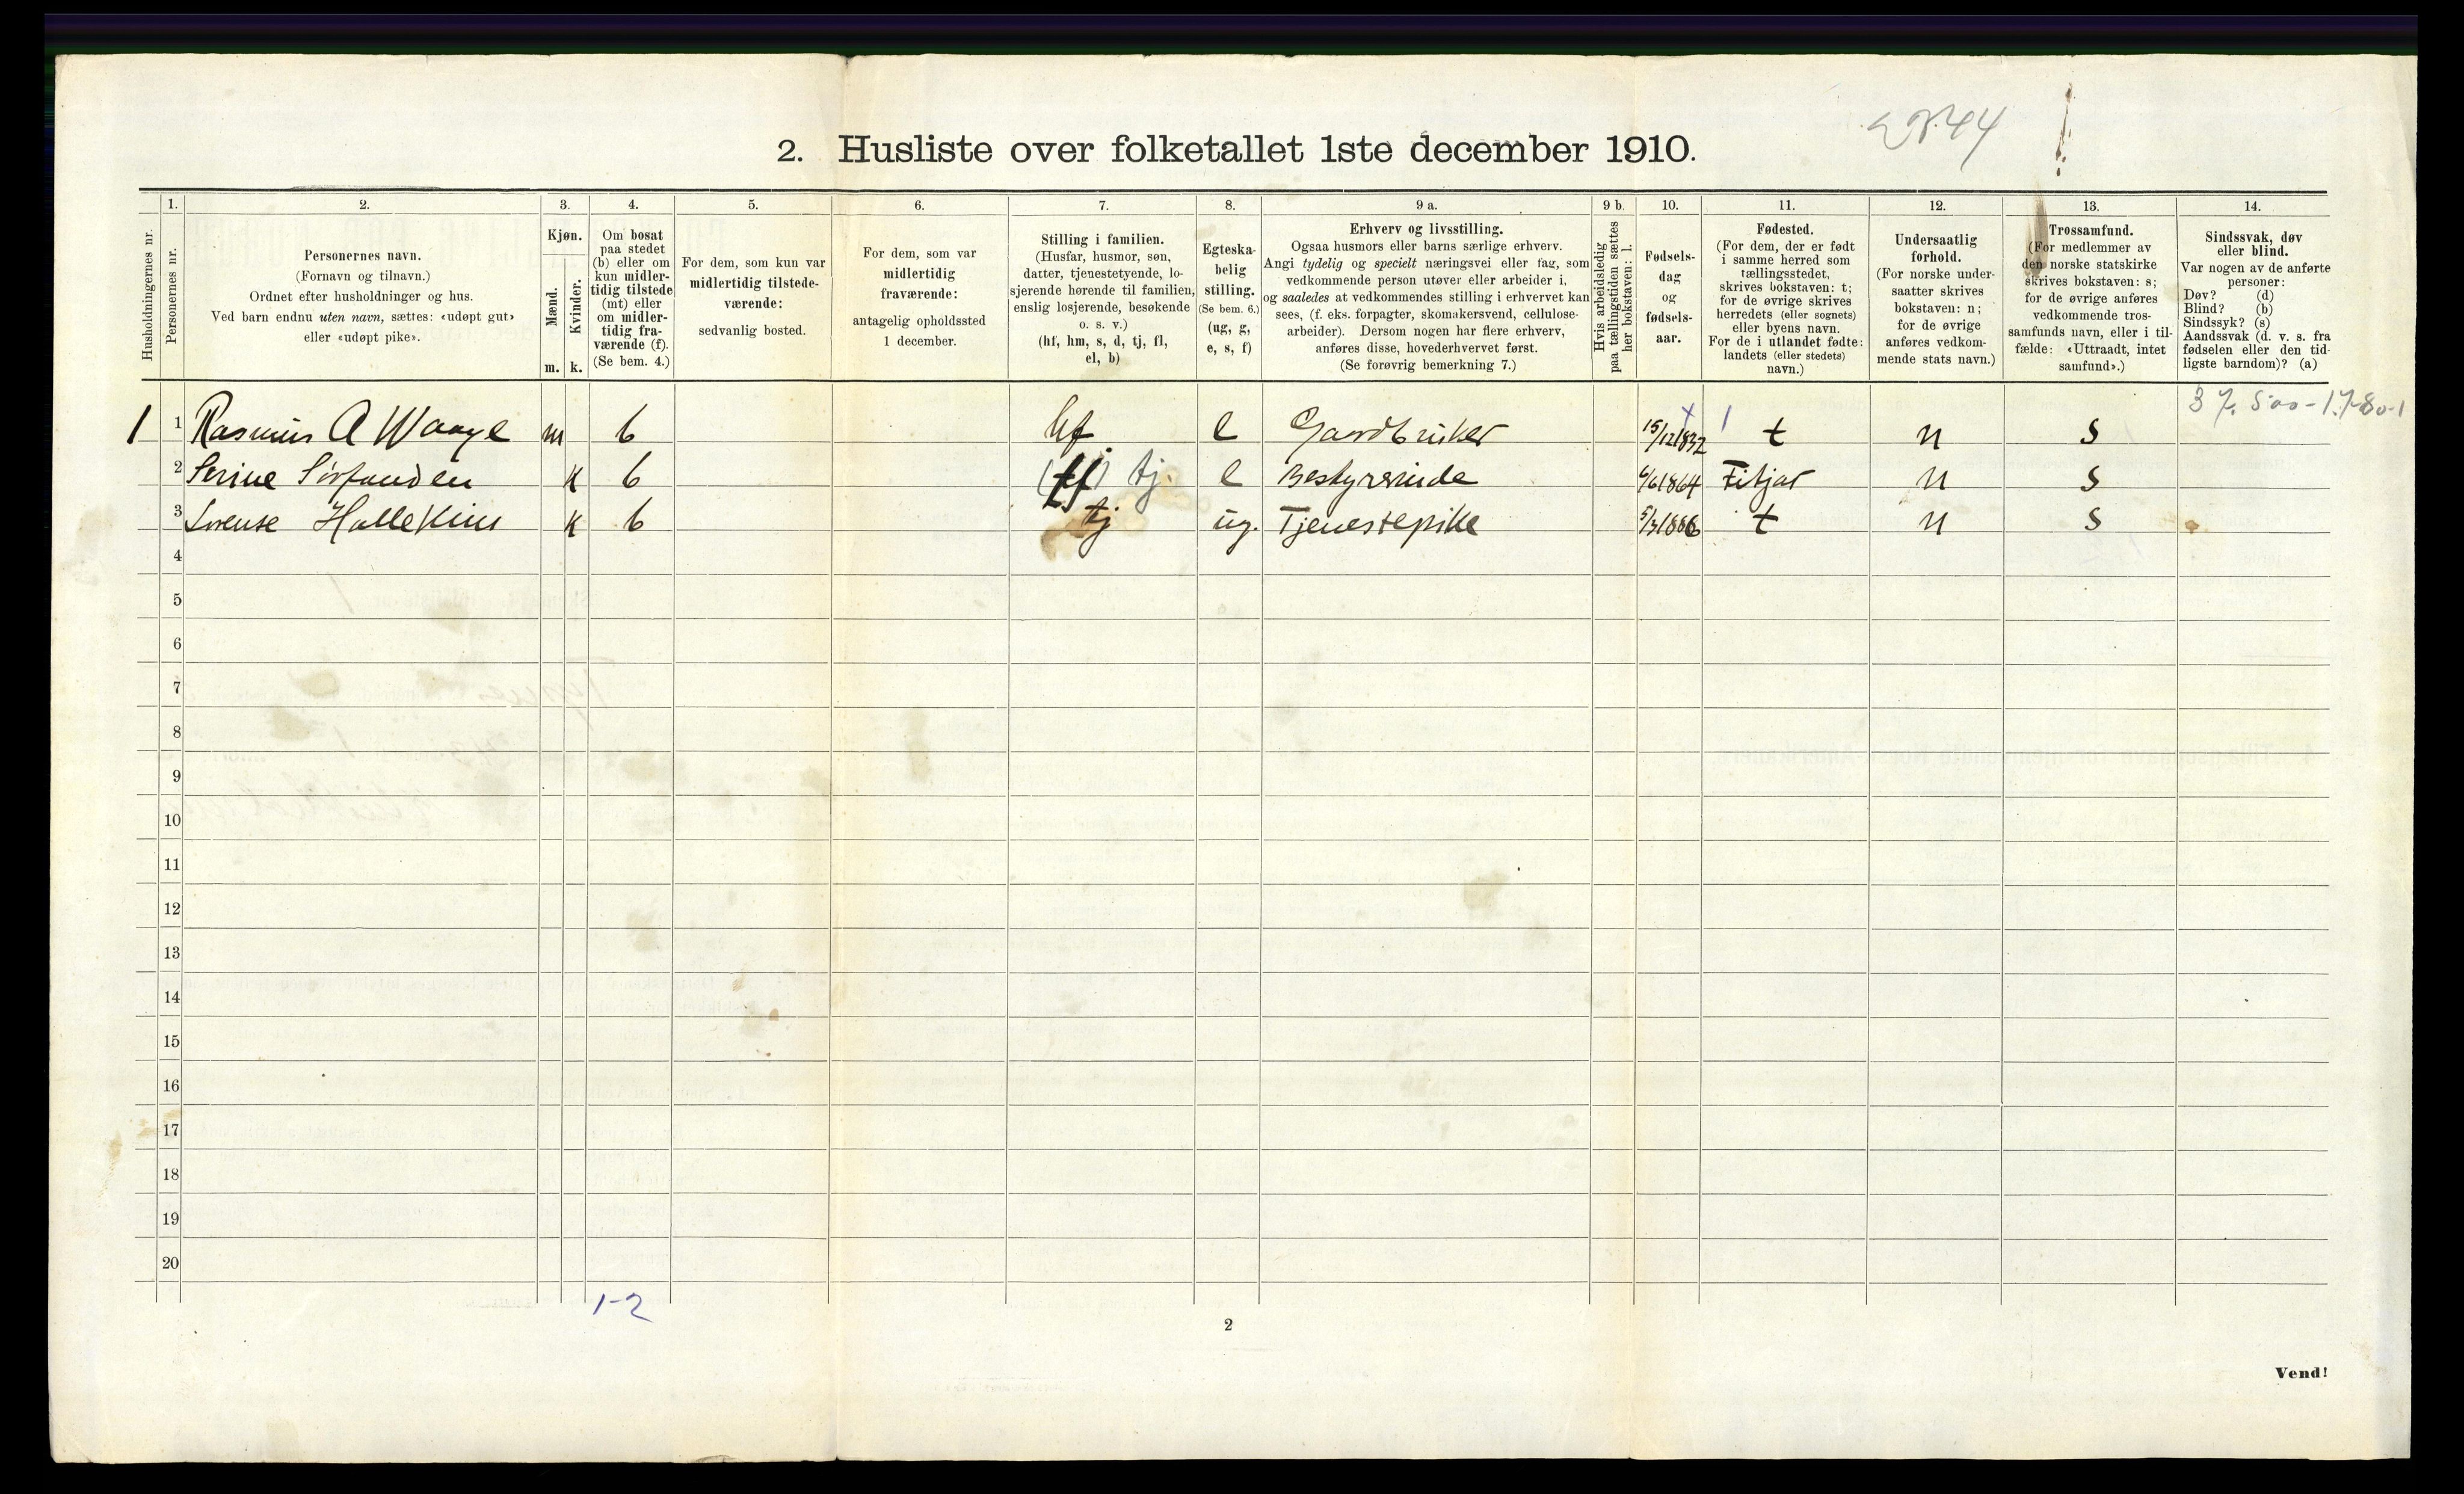 2. Husliste over folketallet 1ste december 1910.
1. 2. 3. 4. 5. 6. 7. 8. 9 a. 9 b. 10. 11. 12. 13. 14.
Husholdningernes nr.
Personernes nr.
Personernes navn.
(Fornavn og tilnavn.)
Ordnet efter husholdninger og hus.
Ved barn endnu uten navn, sættes: «udøpt gut»
eller «udøpt pike».
Kjøn.
Mænd.
Kvinder.
m. k.
Om bosat
paa stedet
(b) eller om
kun midler-
tidig tilstede
(mt) eller
om midler-
tidig fra-
værende (f).
(Se bem. 4.)
For dem, som kun var
midlertidig tilstede-
værende:
sedvanlig bosted.
For dem, som var
midlertidig
fraværende:
antagelig opholdssted
1 december.
Stilling i familien.
(Husfar, husmor, søn,
datter, tjenestetyende, lo-
sjerende hørende til familien,
enslig losjerende, besøkende
o. s. v.)
(hf, hm, s, d, tj, fl,
el, b)
Egteska-
belig
stilling.
(Se bem. 6.)
(ug, g,
e, s, f)
Erhverv og livsstilling.
Ogsaa husmors eller barns særlige erhverv.
Angi tydelig og specielt næringsvei eller fag, som
vedkommende person utøver eller arbeider i,
og saaledes at vedkommendes stilling i erhvervet kan
sees, (f. eks. forpagter, skomakersvend, cellulose-
arbeider). Dersom nogen har flere erhverv,
anføres disse, hovederhvervet først.
(Se forøvrig bemerkning 7.)
Hvis arbeidsledig
paa tællingstiden sættes
her bokstaven: l.
Fødsels-
dag
og
fødsels-
aar.
Fødested.
(For dem, der er født
i samme herred som
tællingsstedet,
skrives bokstaven: t;
for de øvrige skrives
herredets (eller sognets)
eller byens navn.
For de i utlandet fødte:
landets (eller stedets)
navn.)
Undersaatlig
forhold.
(For norske under-
saatter skrives
bokstaven: n;
for de øvrige
anføres vedkom-
mende stats navn.)
Trossamfund.
(For medlemmer av
den norske statskirke
skrives bokstaven: s;
for de øvrige anføres
vedkommende tros-
samfunds navn, eller i til-
fælde: «Uttraadt, intet
samfund».)
Sindssvak, døv
eller blind.
Var nogen av de anførte
personer:
Døv? (d)
Blind? (b)
Sindssyk? (s)
Aandssvak (d. v. s. fra
fødselen eller den tid-
ligste barndom)? (a)
1 1 Rasmus A Waage m b hf e Gardbruker 15/12 1832 t n s
2 Serine k b tj. e Bestyrerinde 1864 Fitjar n s
3 Lorense k b tj ug. Tjenestepike 1886 t n s
4
5
6
7
8
9
10
11
12
13
14
15
16
17
18
19
20
1-2
2
Vend!